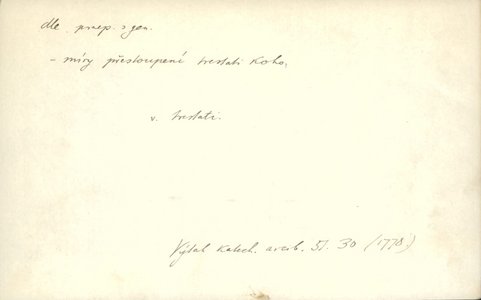 dle praep. s gen.
- míry přestoupení trestati koho.
v. trestati.
Výtah katech. 51. 30 (1778)